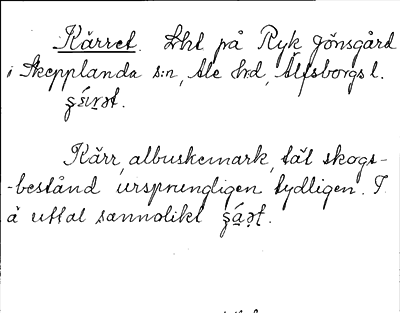 Kärret. Lht på Ryk Jönsgård
i Skepplanda s:n, Ale hd, Älfsborgs l.
Kärr, albuskemark, tät skogs-
-bestånd ursprungligen tydligen. T.
å uttal sannolikt